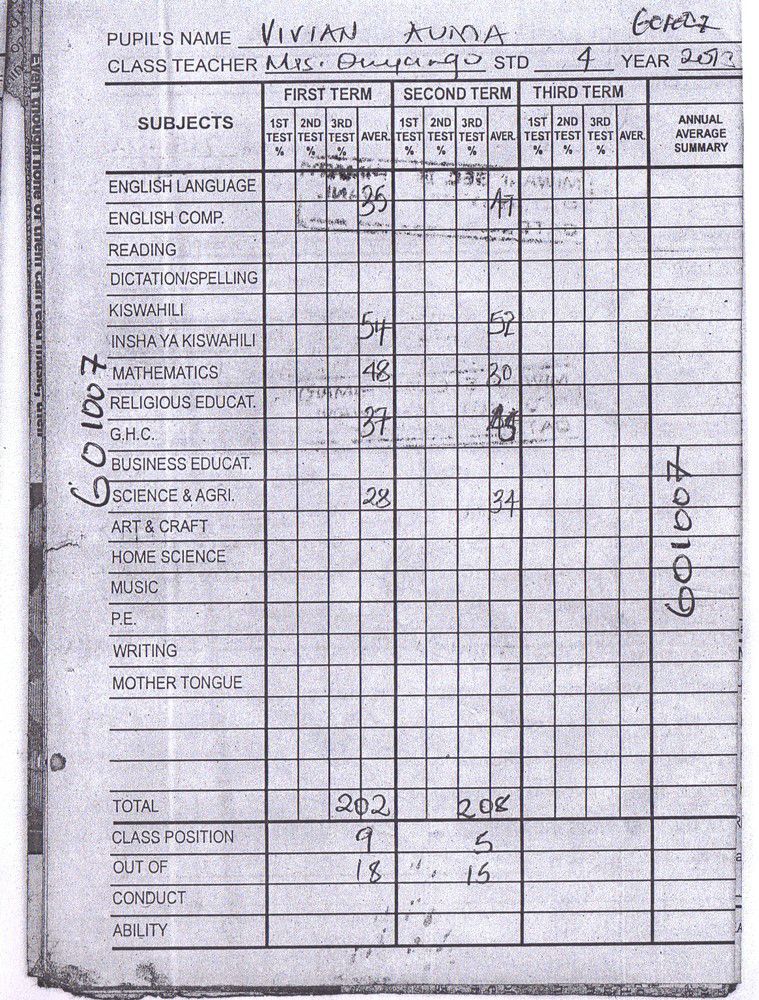 PUPIL'S NAME VIVIAN AUMA
CLASS TEACHER Mrs. Onyango STD 4 YEAR 2013
SUBJECTS FIRST TERM SECOND TERM THIRD TERM ANNUAL AVERAGE SUMMARY
1ST TEST % 2ND TEST % 3RD TEST % AVER. 1ST TEST % 2ND TEST % 3RD TEST % AVER. 1ST TEST % 2ND TEST % 3RD TEST % AVER.
ENGLISH LANGUAGE 35 47
ENGLISH COMP.
READING
DICTATION/SPELLING
KISWAHILI
INSHA YA KISWAHILI 54 52
MATHEMATICS 48 30
RELIGIOUS EDUCAT.
G.H.C. 37 45
BUSINESS EDUCAT.
SCIENCE & AGRI. 28 34
ART & CRAFT
HOME SCIENCE
MUSIC
P.E.
WRITING
MOTHER TONGUE
TOTAL 202 208
CLASS POSITION 9 5
OUT OF 18 15
CONDUCT
ABILITY
601007
601007